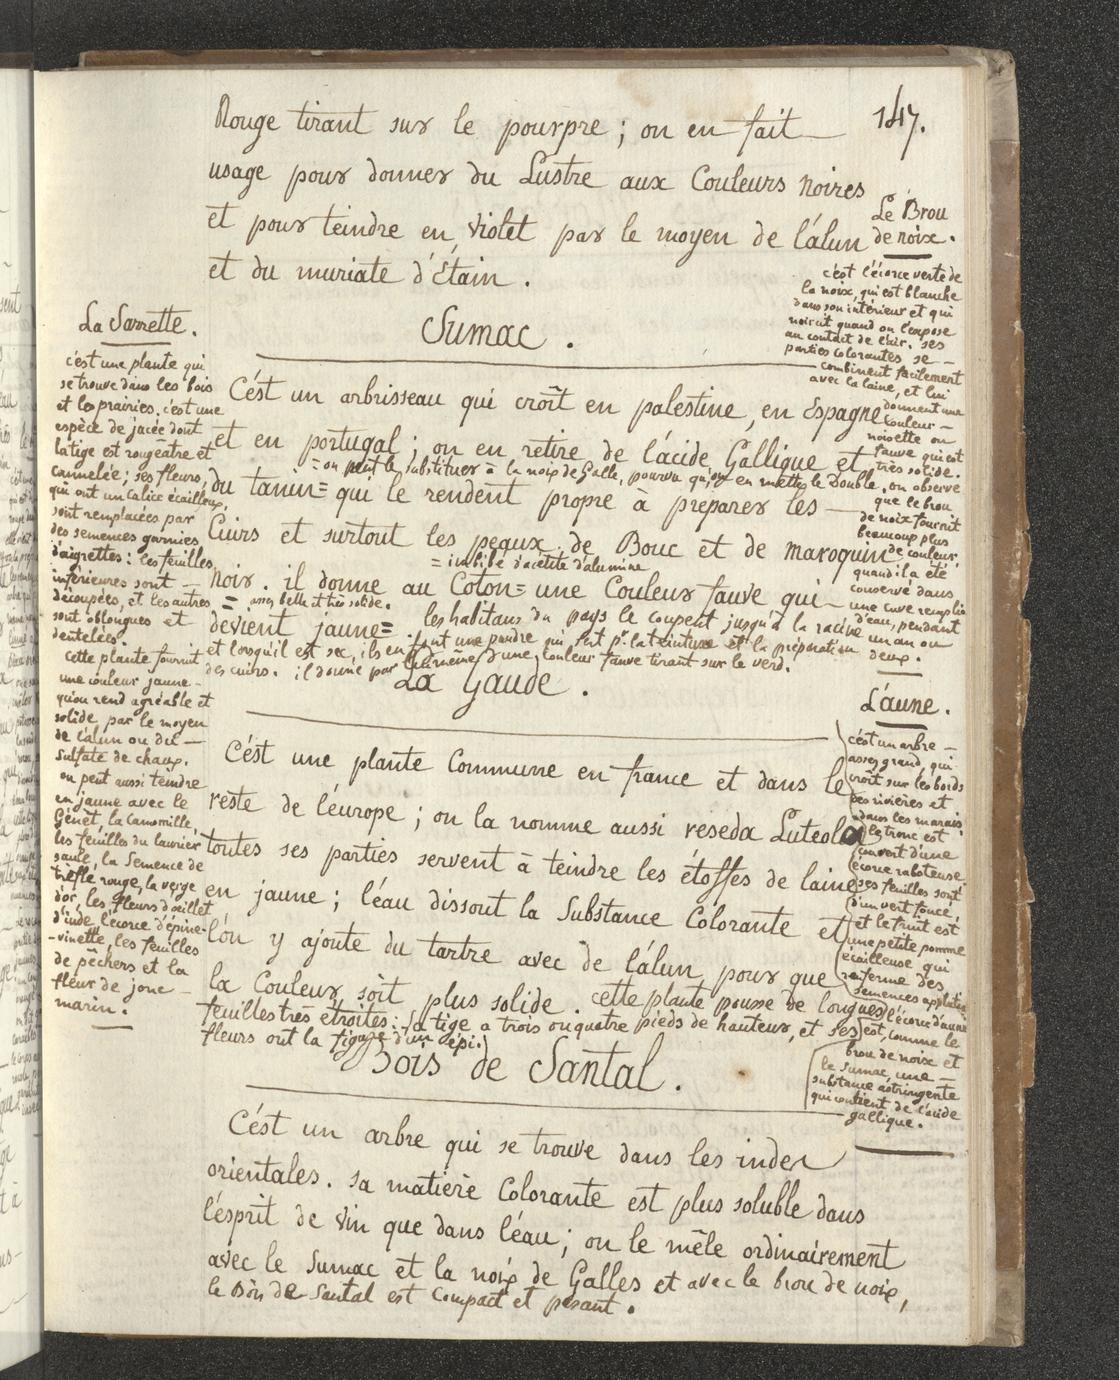 147.
Rouge tirant sur le pourpre ; on en fait
usage pour donner du Lustre aux Couleurs noires
et pour teindre en violet par le moyen de l'alun
et du muriate d'Étain .
Sumac .
C'ést un arbrisseau qui croît en palestine, en Espagne
et en portugal ; on en retire de l'ácide Gallique et
= on peut le substituer à la noix de Galle, pourvu qu'on en mette le Double.
du tanin= qui le rendent propre à préparer les
Cuirs et surtout les peaux de Bouc et de maroquin
= imbibé d'acétite d'alumine
noir . il donne au Coton= une Couleur fauve qui
= assez belle et très solide.
devient jaune= . les habitans du pays le coupent jusqu'à la racine
et lorsqu'il est sec, ils en font une poudre qui sert pr. la teinture et la préparation
des cuirs. il donne par lui même d'une couleur fauve tirant sur le verd.
La Gaude .
C'ést une plante Commune en france et dans le
reste de l'éurope ; on la nomme aussi reseda Luteola
toutes ses parties servent à teindre les étoffes de laine
en jaune ; l'éau dissout la Substance Colorante et
l'ón y ajoute du tartre avec de l'álun pour que
la Couleur soit plus solide . cette plante pousse de longues
feuilles très étroites: sa tige a trois ou quatre pieds de hauteur, et ses
fleurs ont la figure d'un épi.
Bois de Santal .
C'ést un arbre qui se trouve dans les indes
orientales . sa matière Colorante est plus soluble dans
l'ésprit de vin que dans l'éau ; on le mêle ordinairement
avec le Sumac et la noix de Galles et avec le brou de noix,
le Bois de Santal est Compact et pesant .
La Sarrette .
c'est une plante qui
se trouve dans les bois
et les prairies. c'est une
espèce de jacée dont
la tige est rougeâtre et
cannelée ; ses fleurs,
qui ont un calice écailleux,
sont remplacées par
des semences garnies
d'aigrettes : les feuilles
inférieures sont
découpées, et les autres
sont oblongues et
dentelées.
cette plante fournit
une couleur jaune
qu'on rend agréable et
solide par le moyen
de l'alun ou du
Sulfate de chaux.
on peut aussi teindre
en jaune avec le
Génet, la Camomille,
les feuilles du laurier
saule, la Semence de
trèfle rouge, la verge
d'or, les fleurs d'œillet
d'inde, l'écorce d'épine-
-vinette, les feuilles
de pêchers et la
fleur de jonc
marin .
Le Brou
de noix .
c'est l'écorce verte de
la noix, qui est blanche
dans son intérieur et qui
noircit quand on l'expose
au contact de l'air. ses
parties colorantes se
combinent facilement
avec la laine, et lui
donnent une
couleur
noisette ou
fauve qui est
très solide.
on observe
que le brou
de noix fournit
beaucoup plus
de couleur,
quand il a été
conservé dans
une cuve remplie
d'eau, pendant
un an ou
deux.
L'aune .
c'est un arbre
assez grand, qui
croit sur les bords
des rivières et
dans les marais
le tronc est
couvert d'une
écorce raboteuse
ses feuilles sont
d'un vert foncé,
et le fruit est
une petite pomme
écailleuse qui
renferme des
semences applaties
l'écorce d'aune
est, comme le
brou de noix et
le Sumac, une
substance astringente
qui contient de l'acide
gallique.